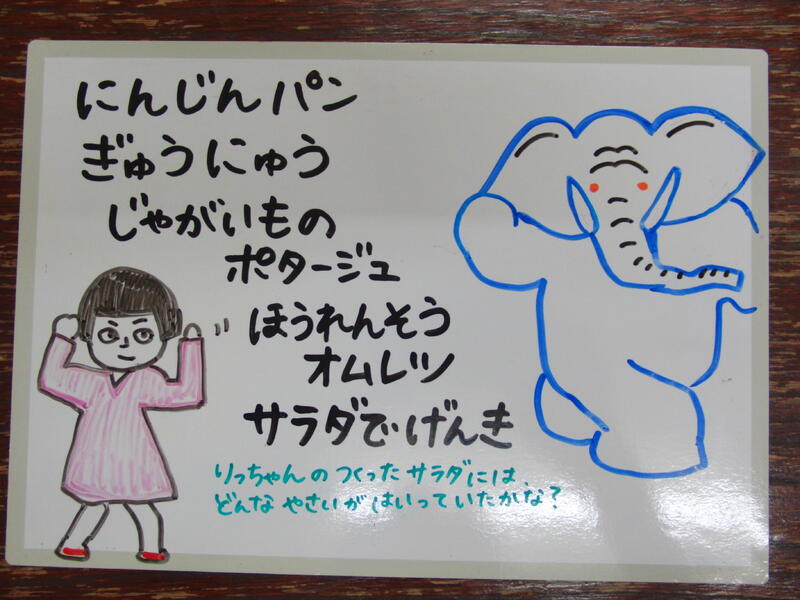 にんじんパン
ぎゅうにゅう
じゃがいもの
ポタージュ
ほうれんそう
オムレツ
サラダでげんき
りっちゃんのつくったサラダには、
どんなやさいがはいっていたかな?